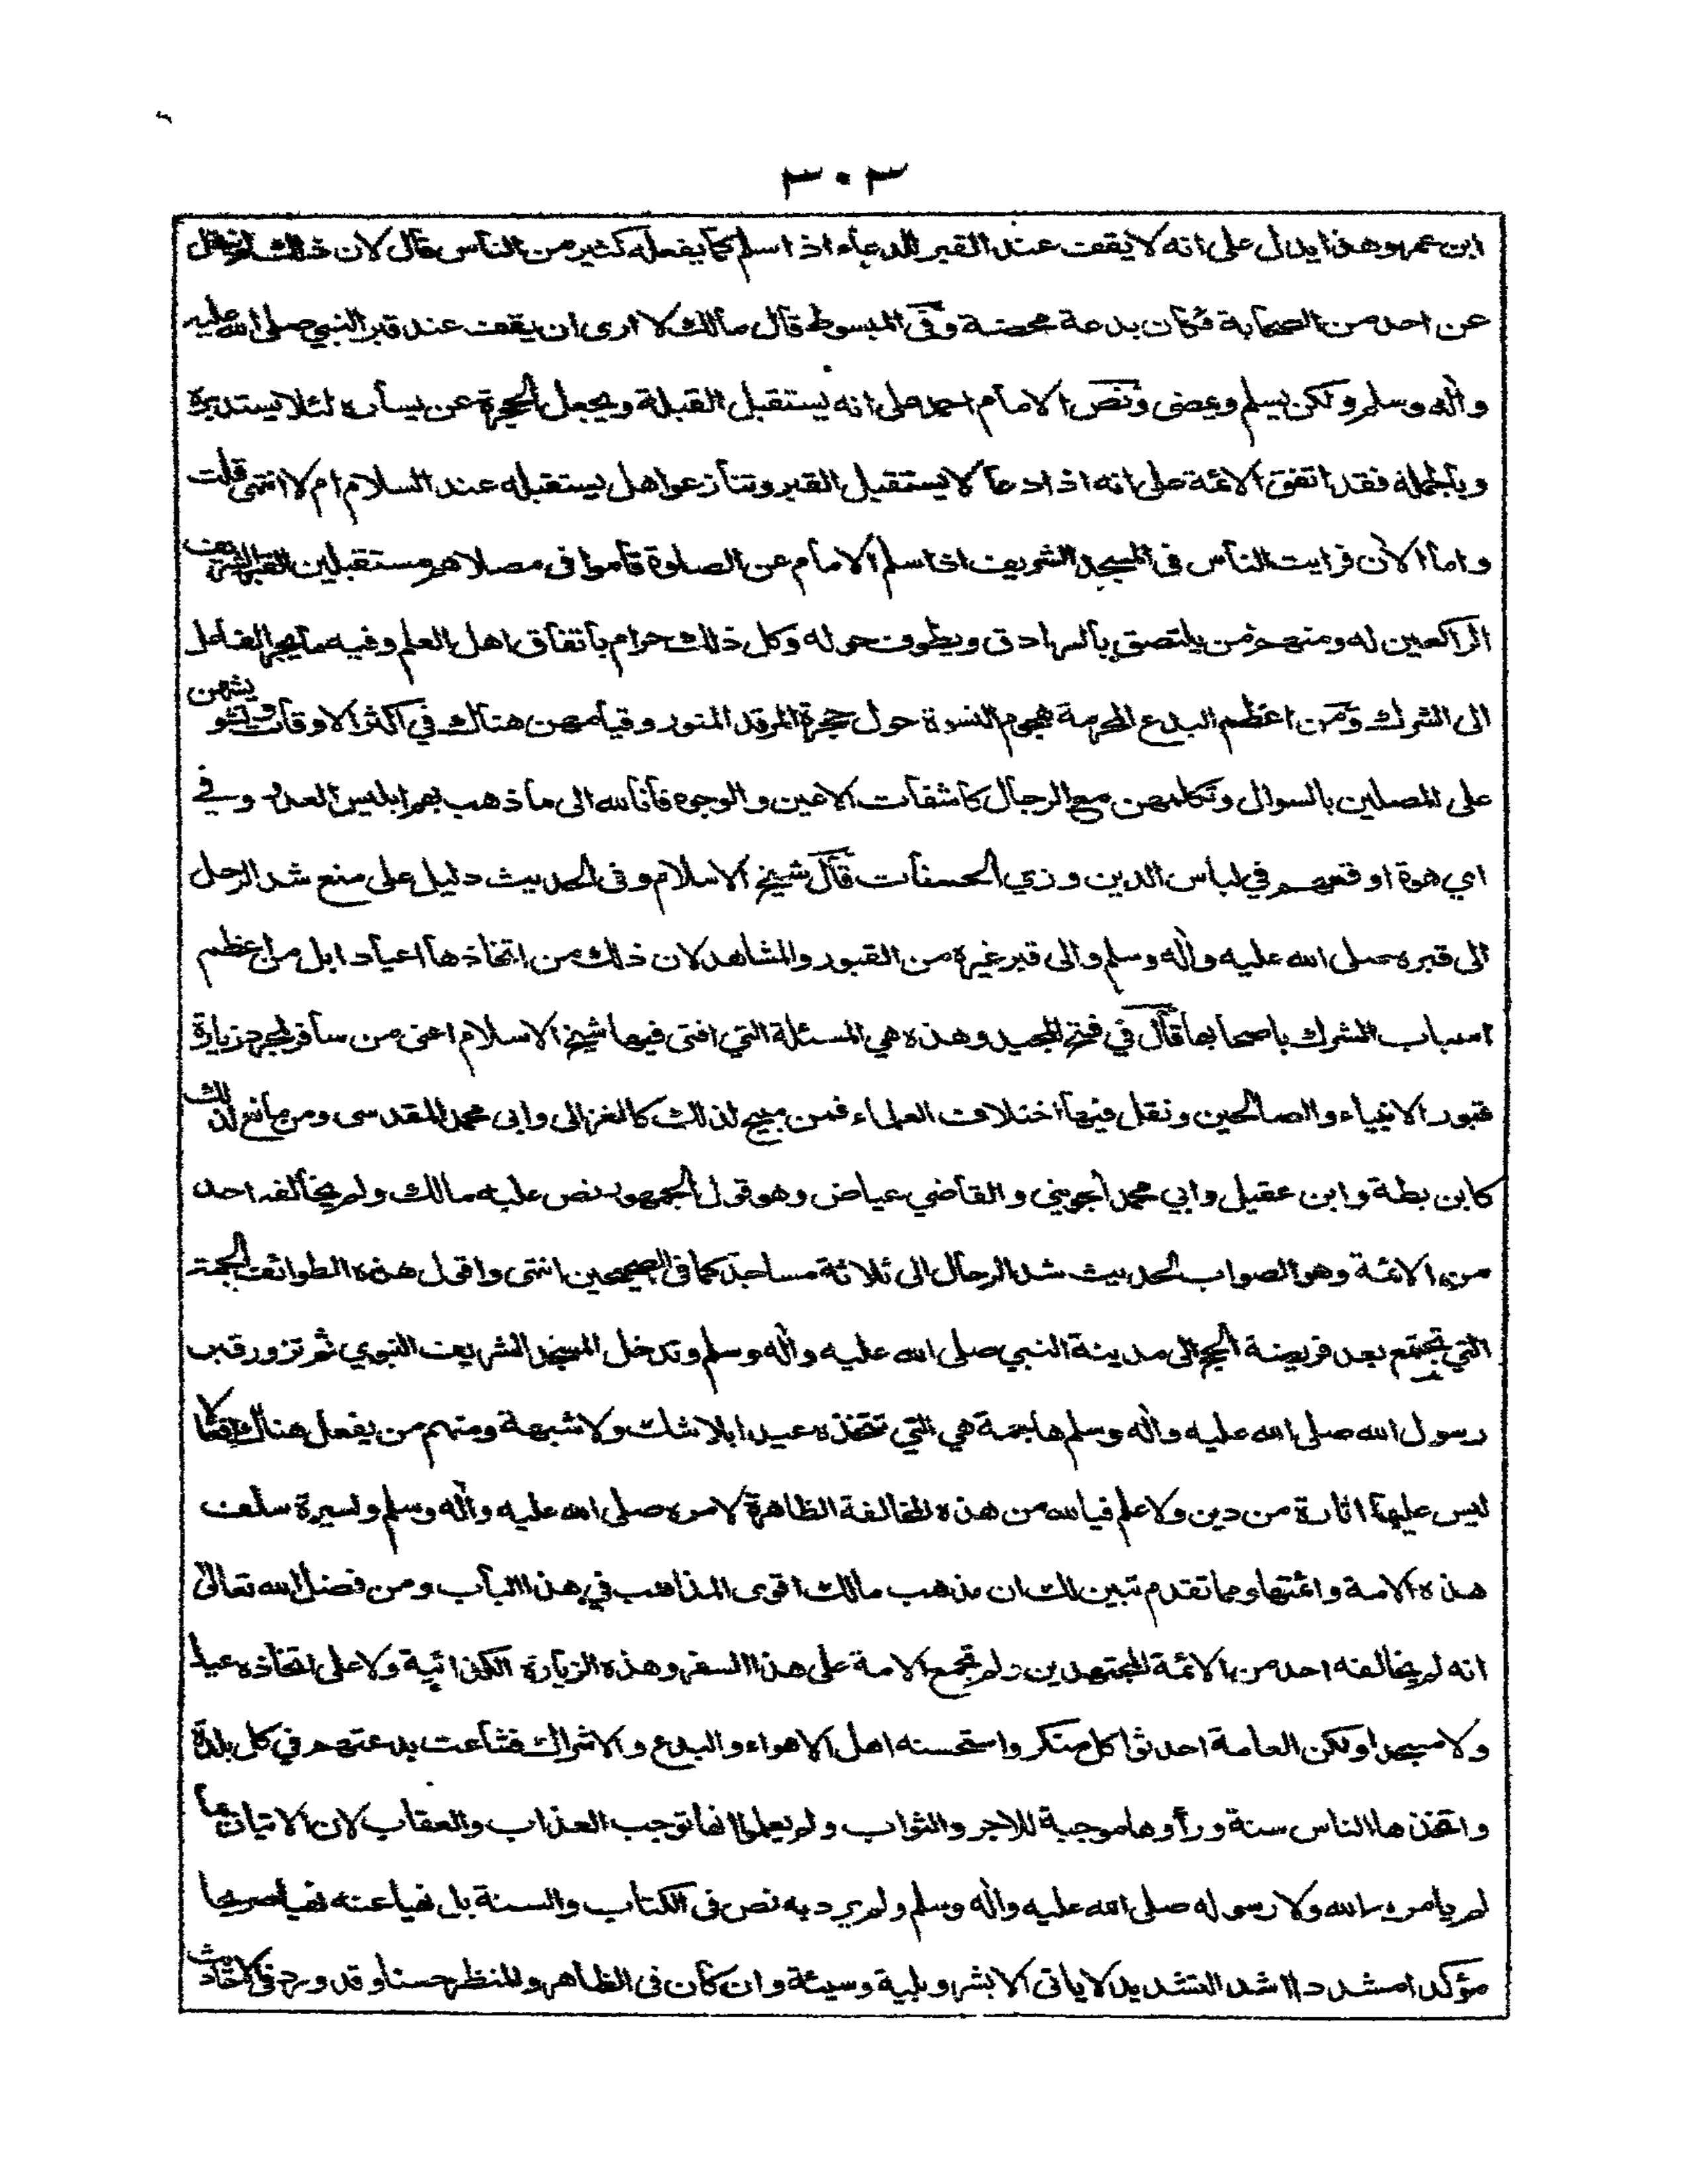 ٣٠٣
ابن عمر وهذا يدل على انه لا يقف عند القبر للدعاء اذا سلم كما يفعله كثير من الناس قال لان ذلك لم ينقل
عن احد من الصحابة فكان بدعة محضة وفى المبسوط قال مالك لا ارى ان يقف عند قبر النبي صلى الله عليه
واله وسلم ولكن يسلم ويمضى ونص الامام احمد على انه يستقبل القبلة ويجعل الحجرة عن يساره لئلا يستدبره
وبالجملة فقد اتفق الائمة على انه اذا دعا لا يستقبل القبر وتنازعوا هل يستقبله عند السلام ام لا انتهى قلت
واما الآن فرايت الناس فى المسجد الشريف اذا سلم الامام عن الصلوة قاموا فى مصلاهم مستقبلين القبر الشريف
الراكعين له ومنهم من يلتصق بالسرادق ويطوف حوله وكل ذلك حرام باتفاق اهل العلم وفيه ما يجر الفاعل
الى الشرك ومن اعظم البدع المحرمة هجوم النسوة حول حجرة المرقد المنور وقيامهن هناك في اكثر الاوقات وتشويشهن
على المصلين بالسوال وتكلمهن مع الرجال كاشفات الاعين والوجوه فانالله الى ما ذهب بهم ابليس العدو وفي
اي هوة اوقعهم في لباس الدين وزي الحسنات قال شيخ الاسلام وفى الحديث دليل على منع شد الرحل
الى قبره صلى الله عليه واله وسلم والى قبر غيره من القبور والمشاهد لان ذلك من اتخاذها اعيادا بل من اعظم
اسباب الشرك باصحابها قال في فتح المجيد وهذه هي المسئلة التي افتى فيها شيخ الاسلام اعنى من سافر لمجرد زيارة
قبور الانبياء والصالحين ونقل فيها اختلاف العلماء فمن مبيح لذلك كالغزالى وابى محمد المقدسى ومن مانع لذلك
كابن بطة وابن عقيل وابي محمد الجويني والقاضي عياض وهو قول الجمهور نص عليه مالك ولم يخالفه احد
من الائمة وهو الصواب لحديث شد الرحال الى ثلاثة مساجد كما فى الصحيحين انتهى واقول هذه الطوائف الجمة
التي تجتمع بعد فريضة الحج الى مدينة النبي صلى الله عليه واله وسلم وتدخل المسجد الشريف النبوي ثم تزور قبر
رسول الله صلى الله عليه واله وسلم هاجمة هي التي تتخذه عيدا بلا شك ولا شبهة ومنهم من يفعل هناك افعالا
ليس عليها اثارة من دين ولا علم فيالله من هذه المخالفة الظاهرة لامره صلى الله عليه واله وسلم ولسيرة سلف
هذه الامة وائمتها ومما تقدم تبين لك ان مذهب مالك اقوى المذاهب في هذا الباب ومن فضل الله تعالى
انه لم يخالفه احد من الائمة المجتهدين ولم تجمع الامة على هذا السفر وهذه الزيارة الكذائية ولا على اتخاذه عيدا
ولا مسجدا ولكن العامة احدثوا كل منكر واستحسنه اهل الاهواء والبدع والاشراك فشاعت بدعتهم في كل بلدة
واتخذها الناس سنة ورأوها موجبة للاجر والثواب ولم يعلموا انها توجب العذاب والعقاب لان الاتيان بما
لم يامر به الله ولا رسوله صلى الله عليه واله وسلم ولم يرد به نص فى الكتاب والسنة بل نهيا عنه نهيا صريحا
مؤكدا مشددا اشد التشديد لا ياتى الا بشر وبلية وسيئة وان كان فى الظاهر والمنظر حسنا وقد ورد فى الاحاديث